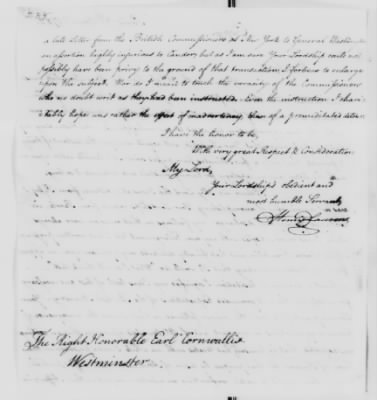 a late Letter from the British Commissioners at New York to General Washington
an assertion highly injurious to Candor, but as I am sure Your Lordship could not
possibly have been privy to the ground of that transaction I forbear to enlarge
upon the subject. Nor do I mean to touch the veracity of the Commissioners
who no doubt writ as they had been instructed. Even the instruction I chari
tably hope was rather the effect of inadvertency than of a premeditated
I have the honor to be,
With very great Respect & Consideration
My Lord,
Your Lordship's obedient and
most humble Servant,
Henry Laurens
The Right Honorable Earl Cornwallis
Westminster